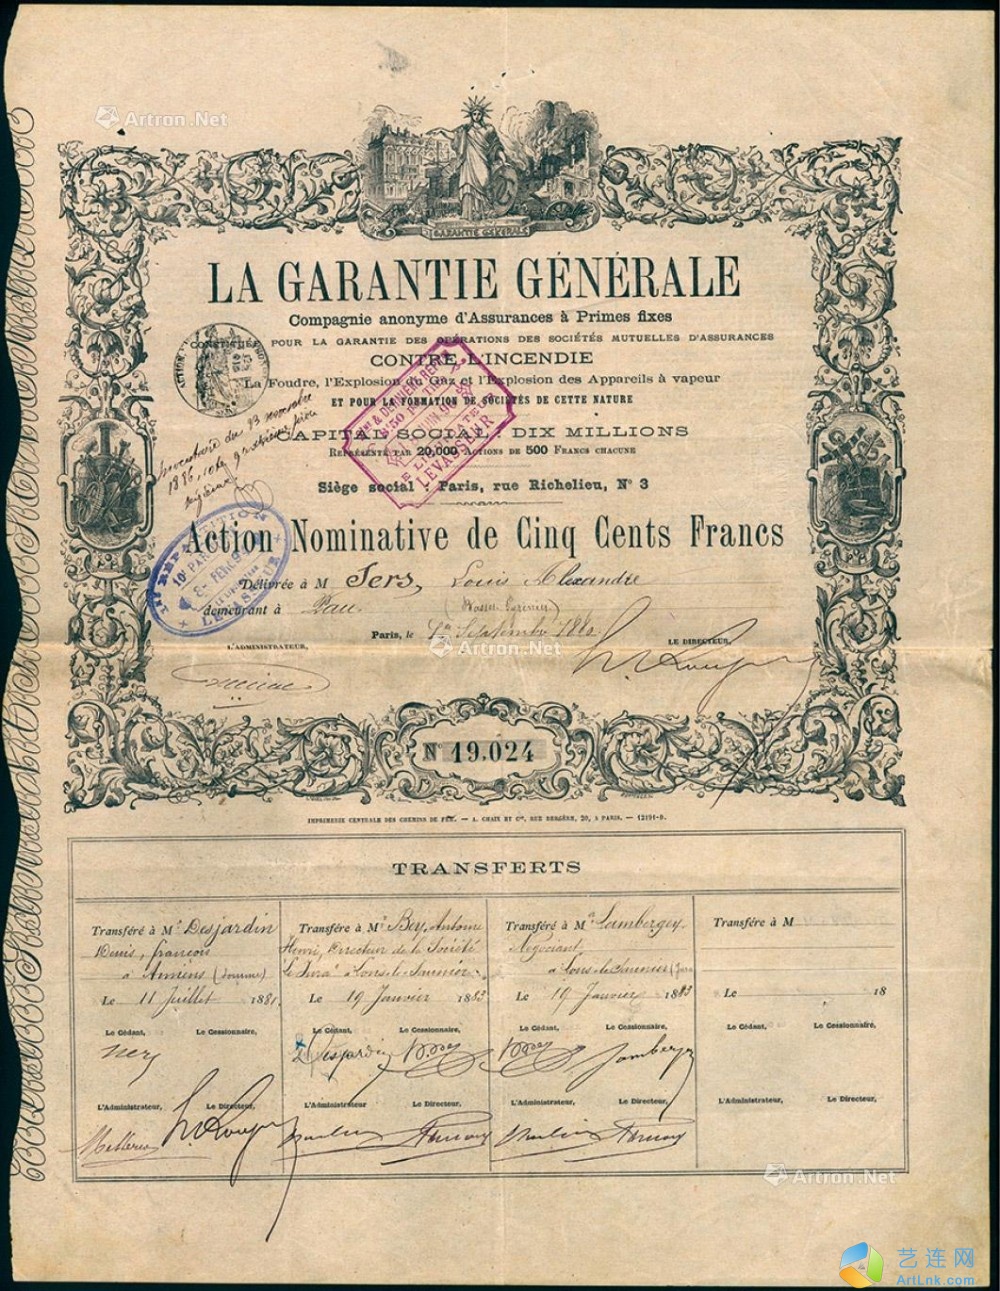 Artron.Net
GARANTIE GÉNÉRALE
LA GARANTIE GÉNÉRALE
Compagnie anonyme d'Assurances à Primes fixes
CONSTITUÉE POUR LA GARANTIE DES OPÉRATIONS DES SOCIÉTÉS MUTUELLES D'ASSURANCES
CONTRE L'INCENDIE
La Foudre, l'Explosion du Gaz et l'Explosion des Appareils à vapeur
ET POUR LA FORMATION DE SOCIÉTÉS DE CETTE NATURE
CAPITAL SOCIAL : DIX MILLIONS
REPRÉSENTÉ PAR 20,000 ACTIONS DE 500 FRANCS CHACUNE
Siège social : Paris, rue Richelieu, N° 3
LEVASSEUR
Action Nominative de Cinq Cents Francs
RÉPARTITION
LEVASSEUR
Délivrée à M Sers, Louis Alexandre
demeurant à Pau
Paris, le 1er Septembre 1880
Artron.Net
L'ADMINISTRATEUR,
LE DIRECTEUR,
N° 19.024
IMPRIMERIE CENTRALE DES CHEMINS DE FER. — A. CHAIX ET Cie, RUE BERGÈRE, 20, A PARIS. — 12191-0.
TRANSFERTS
Transféré à Mr Desjardin
Denis, françois
à Amiens (Somme)
Le 11 Juillet 1881
Le Cédant, Le Cessionnaire,
L'Administrateur, Le Directeur,
Transféré à Mr Bey, Antoine
Henri, Directeur de la Société
Le Jura à Lons-le-Saunier
Le 19 Janvier 1883
Le Cédant, Le Cessionnaire,
Desjardin
L'Administrateur Le Directeur,
Transféré à Mr Lambergey
Négociant
à Lons-le-Saunier (Jura
Le 19 Janvier 1883
Le Cédant, Le Cessionnaire,
L'Administrateur, Le Directeur,
Transféré à M
Le 18
Le Cédant, Le Cessionnaire,
L'Administrateur, Le Directeur,
Artron.Net
艺连网
ArtLnk.com